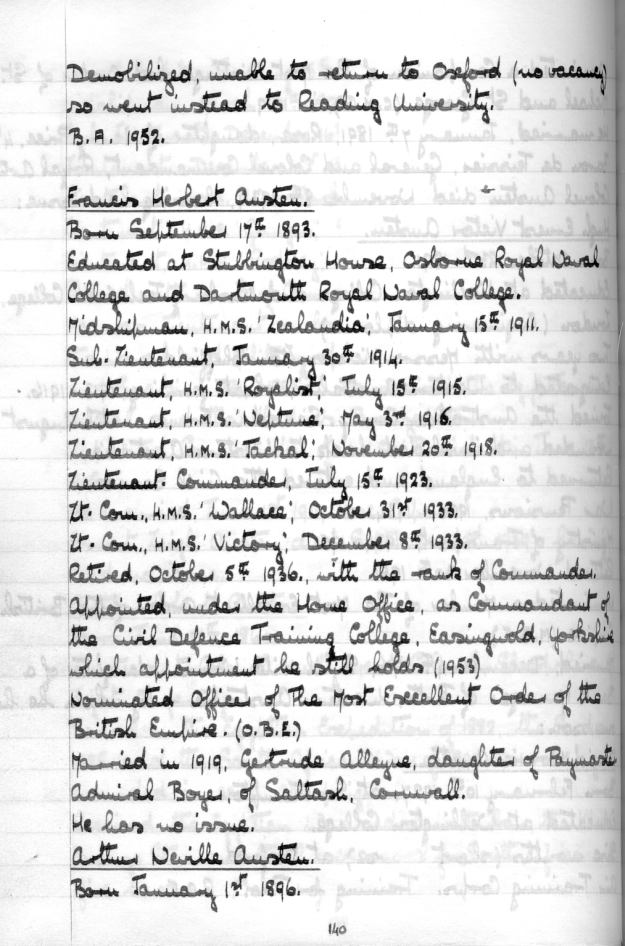 Demobilized, unable to return to Oxford (no vacancy)
so went instead to Reading University.
B.A. 1952.
Francis Herbert Austen.
Born September 17th 1893.
Educated at Stubbington House, Osborne Royal Naval
College and Dartmouth Royal Naval College.
Midshipman, H.M.S. 'Zealandia', January 15th 1911.
Sub-Lieutenant, January 30th 1914.
Lieutenant, H.M.S. 'Royalist', July 15th 1915.
Lieutenant, H.M.S. 'Neptune', May 3rd 1916.
Lieutenant, H.M.S. 'Jackal', November 20th 1918.
Lieutenant-Commander, July 15th 1923.
Lt-Com., H.M.S. 'Wallace', October 31st 1933.
Lt-Com., H.M.S. 'Victory', December 8th 1933.
Retired, October 5th 1936., with the rank of Commander.
Appointed, under the Home Office, as Commandant of
the Civil Defence Training College, Easingwold, Yorkshire
which appointment he still holds (1953)
Nominated Officer of The Most Excellent Order of the
British Empire. (O.B.E.)
Married in 1919, Gertrude Alleyne, daughter of Paymaster
Admiral Boyer, of Saltash, Cornwall.
He has no issue.
Arthur Neville Austen.
Born January 1st 1896.
140